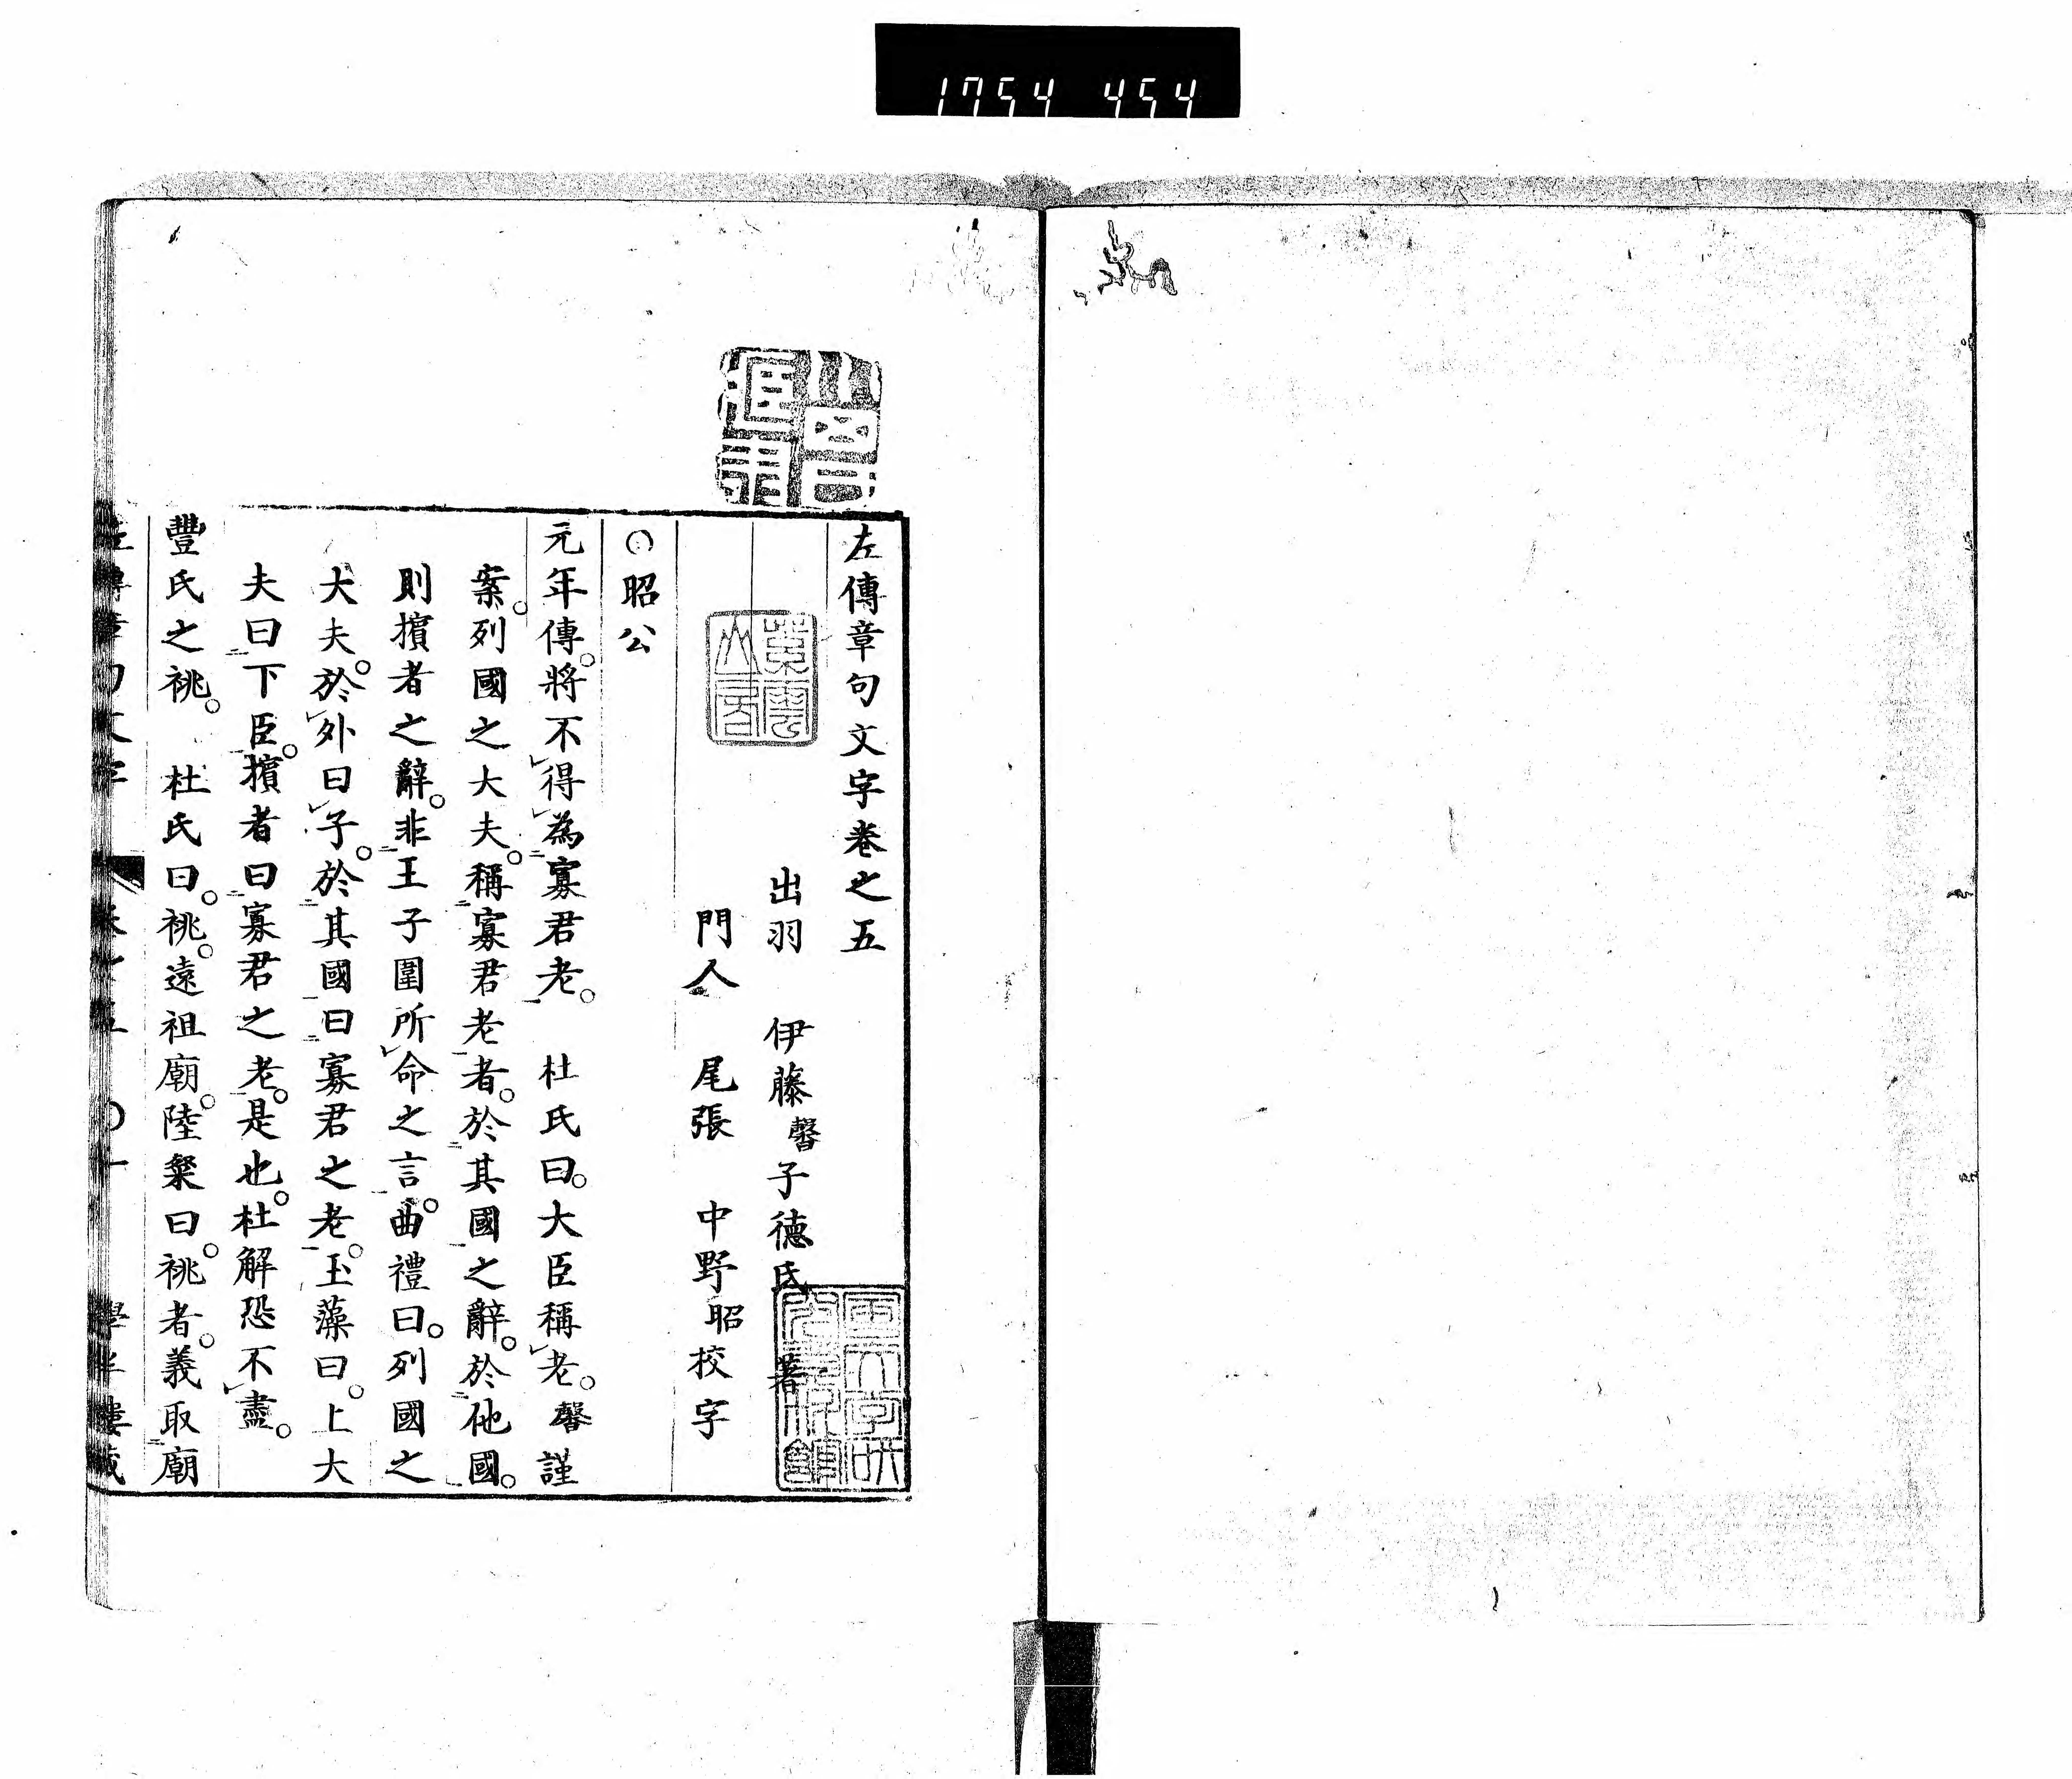 1754 454
左傳章句文字卷之五
出羽 伊藤馨子德氏 著
門人 尾張 中野昭校字
○昭公
元年傳。將不得為寡君老。 杜氏曰。大臣稱老。馨謹
案。列國之大夫。稱寡君老者。於其國之辭。於他國。
則擯者之辭。非王子圍所命之言。曲禮曰。列國之
大夫。於外曰子。於其國曰寡君之老。玉藻曰。上大
夫曰下臣。擯者曰寡君之老。是也。杜解恐不盡。
豐氏之祧。 杜氏曰。祧。遠祖廟。陸粲曰。祧者。義取廟
左傳章句文字 卷之五 ○一 學半樓藏